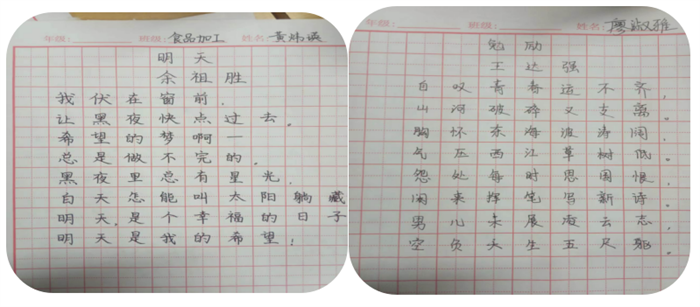 年级: 班级: 食品加工 姓名 黄炜瑛
明天
余祖胜
我伏在窗前,
让黑夜快点过去。
希望的梦啊一
总是做不完的。
黑夜里总有星光。
白天怎能叫太阳躺藏
明天,是个幸福的日子
明天,是我的希望!
年级: 班级: 姓名: 廖淑雅
勉励
王达强
自叹青春运不齐,
山河破碎又支离。
胸怀东海波涛阔,
气压西江草树低。
怨处每时思国恨,
闲来挥笔写新诗。
男儿未展凌云志,
空负天生五尺躯。